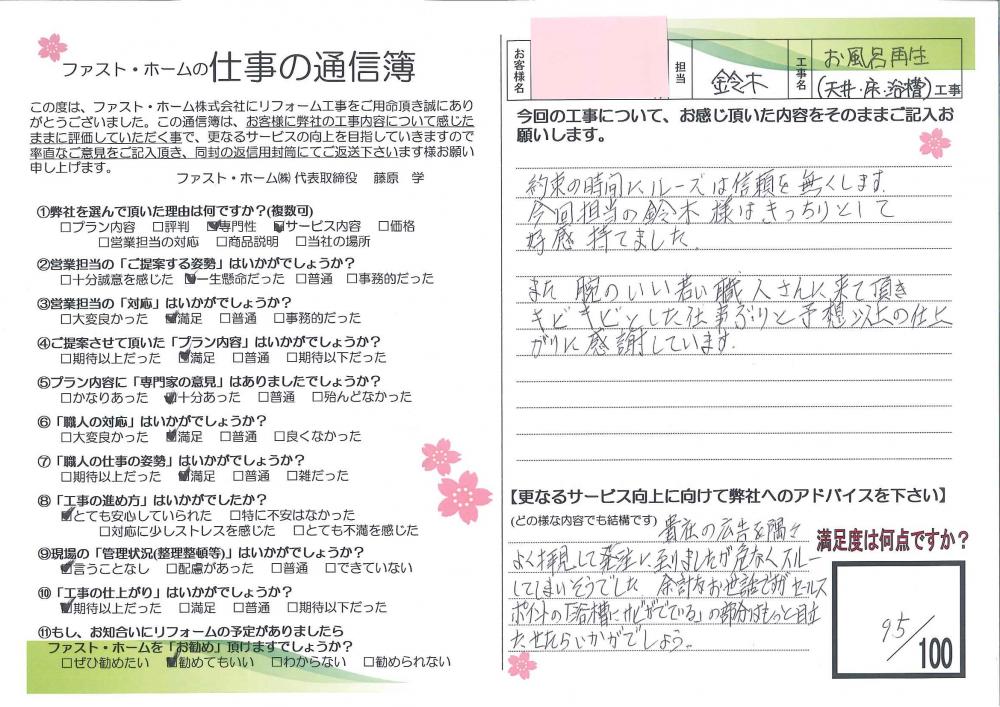 ファスト・ホームの仕事の通信簿
この度は、ファスト・ホーム株式会社にリフォーム工事をご用命頂き誠にあり
がとうございました。この通信簿は、お客様に弊社の工事内容について感じた
ままに評価していただく事で、更なるサービスの向上を目指していきますので
率直なご意見をご記入頂き、同封の返信用封筒にてご返送下さいます様お願い
申し上げます。
ファスト・ホーム㈱ 代表取締役 藤原 学
①弊社を選んで頂いた理由は何ですか?(複数可)
□プラン内容 □評判 ☑専門性 ☑サービス内容 □価格
□営業担当の対応 □商品説明 □当社の場所
②営業担当の「ご提案する姿勢」はいかがでしょうか?
□十分誠意を感じた ☑一生懸命だった □普通 □事務的だった
③営業担当の「対応」はいかがでしょうか?
□大変良かった ☑満足 □普通 □事務的だった
④ご提案させて頂いた「プラン内容」はいかがでしょうか?
□期待以上だった ☑満足 □普通 □期待以下だった
⑤プラン内容に「専門家の意見」はありましたでしょうか?
□かなりあった ☑十分あった □普通 □殆んどなかった
⑥「職人の対応」はいかがでしょうか?
□大変良かった ☑満足 □普通 □良くなかった
⑦「職人の仕事の姿勢」はいかがでしょうか?
□期待以上だった ☑満足 □普通 □雑だった
⑧「工事の進め方」はいかがでしたか?
☑とても安心していられた □特に不安はなかった
□対応に少しストレスを感じた □とても不満を感じた
⑨現場の「管理状況(整理整頓等)」はいかがでしょうか?
☑言うことなし □配慮があった □普通 □できていない
⑩「工事の仕上がり」はいかがでしょうか?
☑期待以上だった □満足 □普通 □期待以下だった
⑪もし、お知合いにリフォームの予定がありましたら
ファスト・ホームを「お勧め」頂けますでしょうか?
□ぜひ勧めたい ☑勧めてもいい □わからない □勧められない
お客様名
担当 鈴木
工事名 お風呂再生
(天井・床・浴槽)工事
今回の工事について、お感じ頂いた内容をそのままご記入お
願いします。
約束の時間にルーズは信頼を無くします.
今回担当の鈴木様はきっちりとして
好感持てました.
また 腕のいい若い職人さんに来て頂き
キビキビとした仕事ぶりと予想以上の仕上
がりに感謝しています.
【更なるサービス向上に向けて弊社へのアドバイスを下さい】
(どの様な内容でも結構です) 貴社の広告を隅々
よく拝見して発注に至りましたが危なくスルー
してしまいそうでした 余計なお世話ですが セールス
ポイントの「浴槽にサビがでている」の部分はもっと目立
たせたらいかがでしょう。
満足度は何点ですか?
95/100